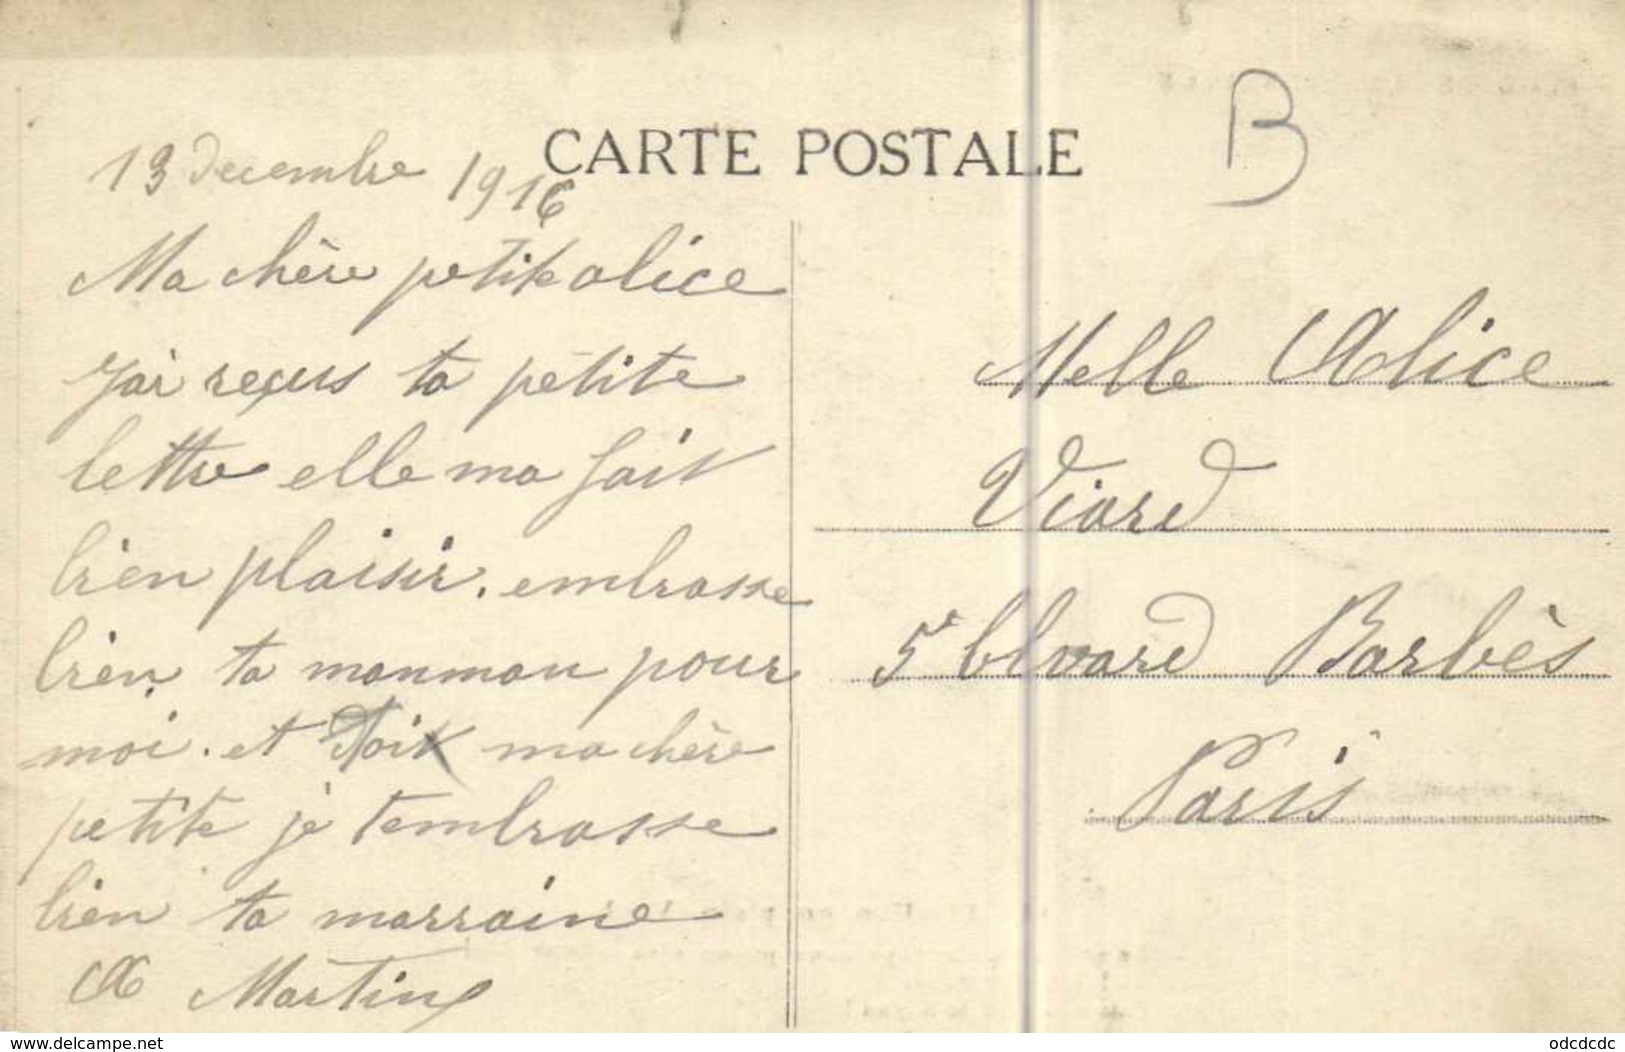 CARTE POSTALE
B
13 decembre 1916
Ma chère petite alice
j'ai reçus ta petite
lettre elle ma fait
bien plaisir. embrasse
bien ta manman pour
moi. et toi ma chère
petite je tembrasse
bien ta marraine
A Martin
Melle Alice
Viard
5 blvard Barbès
Paris
www.delcampe.net
odcdcdc